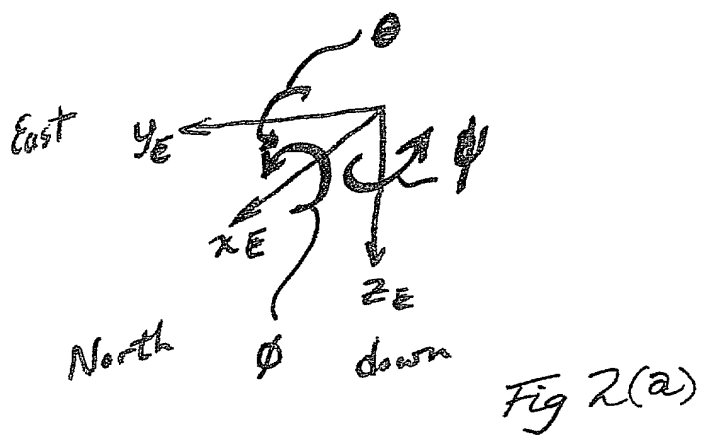 θ
East y_E
ψ
x_E
z_E
North ϕ down
Fig 2(a)